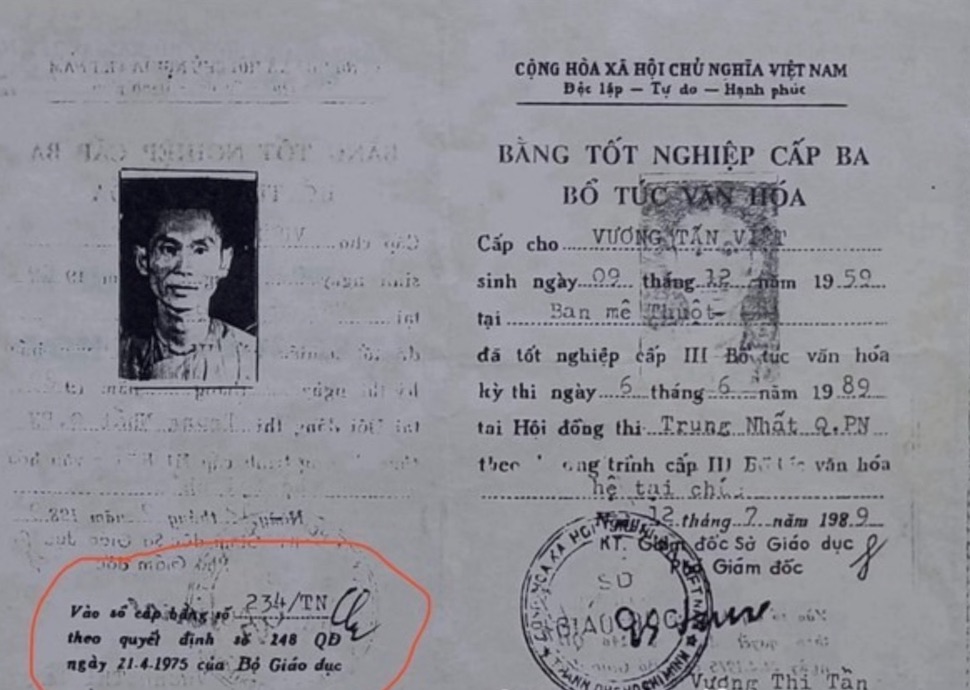 Vào sổ cấp bằng số 234/TN
theo quyết định số 248 QĐ
ngày 21.4.1975 của Bộ Giáo dục
CỘNG HÒA XÃ HỘI CHỦ NGHĨA VIỆT NAM
Độc lập — Tự do — Hạnh phúc
BẰNG TỐT NGHIỆP CẤP BA
BỔ TÚC VĂN HÓA
Cấp cho VƯƠNG TẤN VIỆT
sinh ngày 09 tháng 12 năm 19 59
tại Ban mê Thuột
đã tốt nghiệp cấp III Bổ túc văn hóa
kỳ thi ngày 6 tháng 6 năm 19 89
tại Hội đồng thi Trung Nhất Q.PN
trình cấp III văn hóa
hệ tại
12 tháng 7 năm 198 9
KT. Giám đốc Sở Giáo dục
Phó Giám đốc
SỞ
GIÁO DỤC
Vương Thị Tần